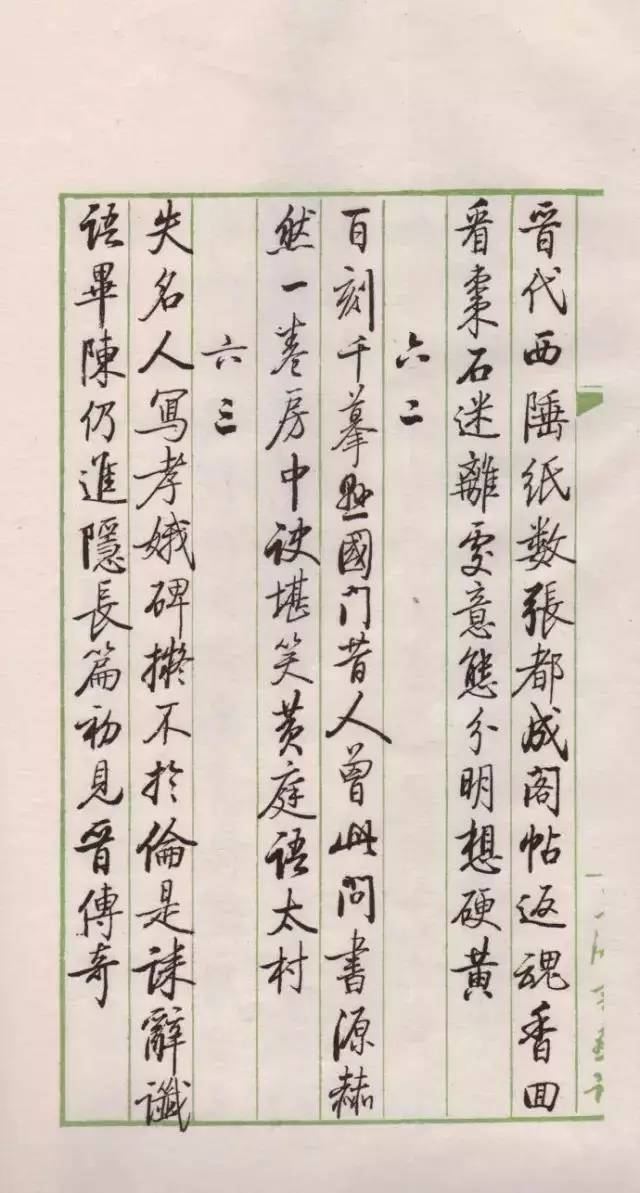 晉代西陲纸数張都成阁帖返魂香回
看棗石迷離處意態分明想硬黄
六二
百刻千摹悬國门昔人曾此问書源赫
然一卷房中诀堪笑黄庭语太村
六三
失名人寫孝娥碑擬不於倫是誄辭讖
语畢陳仍進隱長篇初見晉傳奇